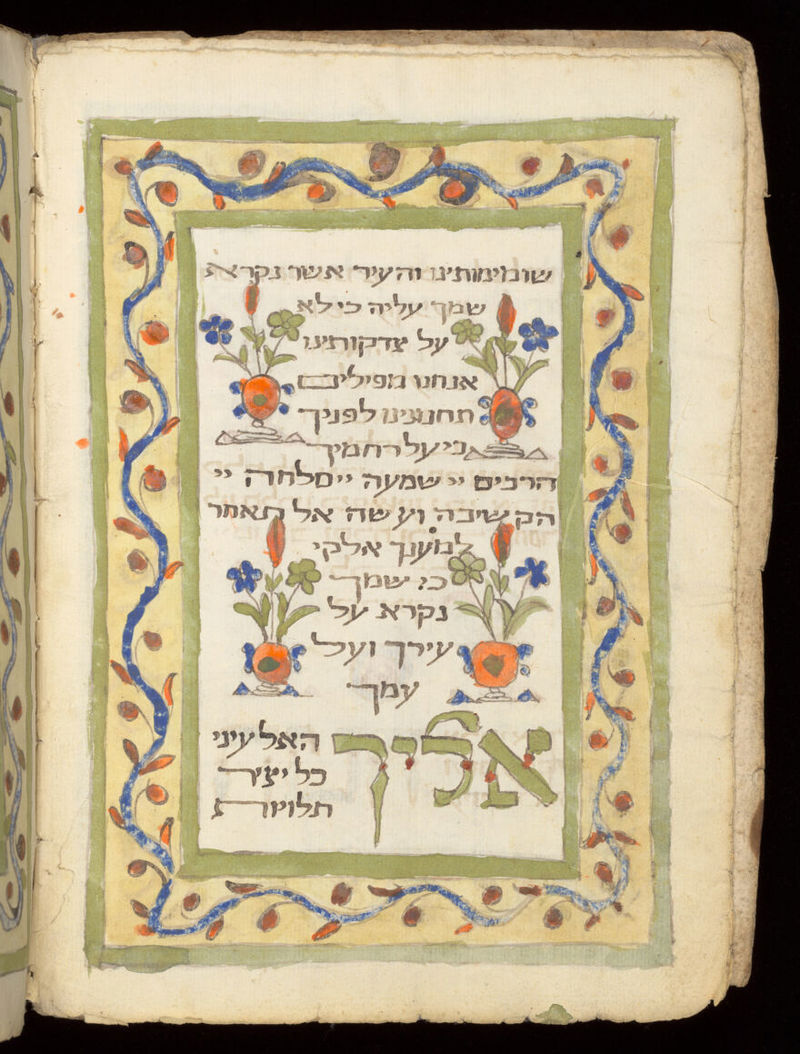 שוממותינו והעיר אשר נקרא
שמך עליה כי לא
על צדקותינו
אנחנו מפילים
תחנונינו לפניך
כי על רחמיך
הרבים יי שמעה יי סלחה יי
הקשיבה ועשה אל תאחר
למענך אלקי
כי שמך
נקרא על
עירך ועל
עמך
אליך האל עיני
כל יציר
תלויות